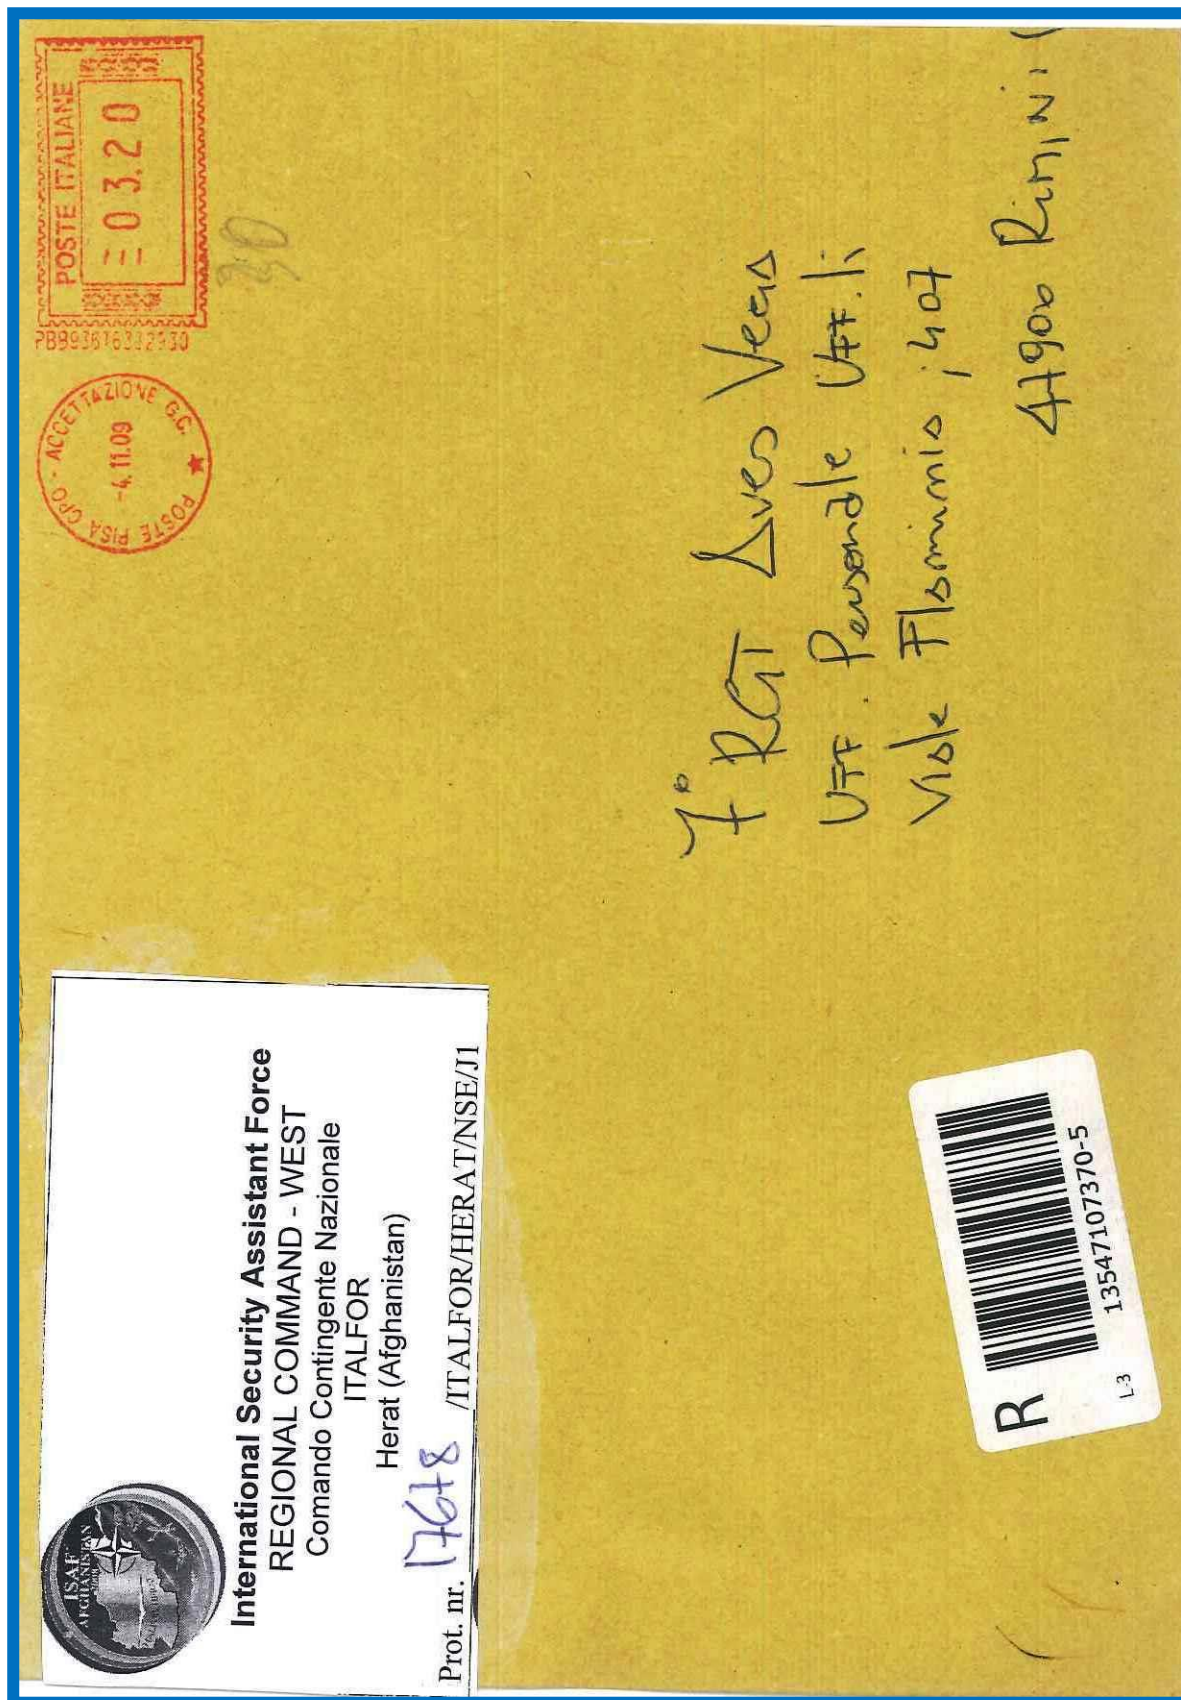 ISAF
AFGHANISTAN
International Security Assistant Force
REGIONAL COMMAND - WEST
Comando Contingente Nazionale
ITALFOR
Herat (Afghanistan)
Prot. nr. 17678 /ITALFOR/HERAT/NSE/J1
POSTE PISA CPO - ACCETTAZIONE G.C.
-4.11.09
POSTE ITALIANE
03.20
7° RGT Aves Vega
Uff. Personale Uff.li
Viale Flaminia, 407
47900 Rimini (
R
13547107370-5
L-3